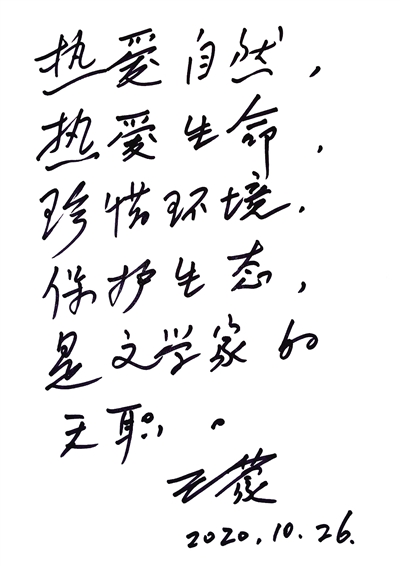 热爱自然,
热爱生命,
珍惜环境.
保护生态,
是文学家的
天职。
王蒙
2020.10.26.